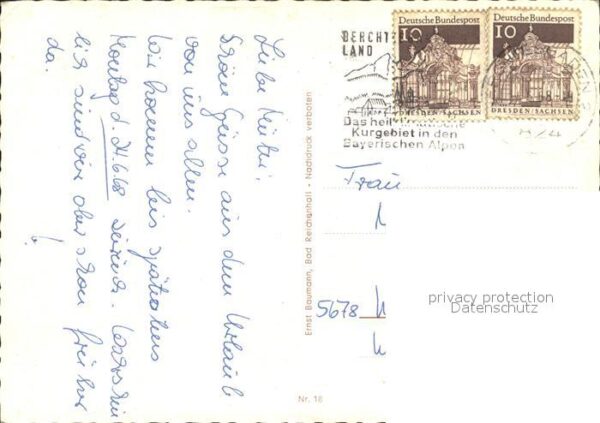 Liebe
Schöne Grüsse aus dem Urlaub
von uns allen.
Wir kommen bis spätestens
Montag d. 24.6.68 zurück.
sind wir aber schon früher
da!
BERCHT
LAND
Das heil
Kurgebiet in den
Bayerischen Alpen
Deutsche Bundespost
10
DRESDEN/SACHSEN
Deutsche Bundespost
10
DRESDEN/SACHSEN
Frau
5678
Ernst Baumann, Bad Reichenhall - Nachdruck verboten
Nr. 18
privacy protection
Datenschutz